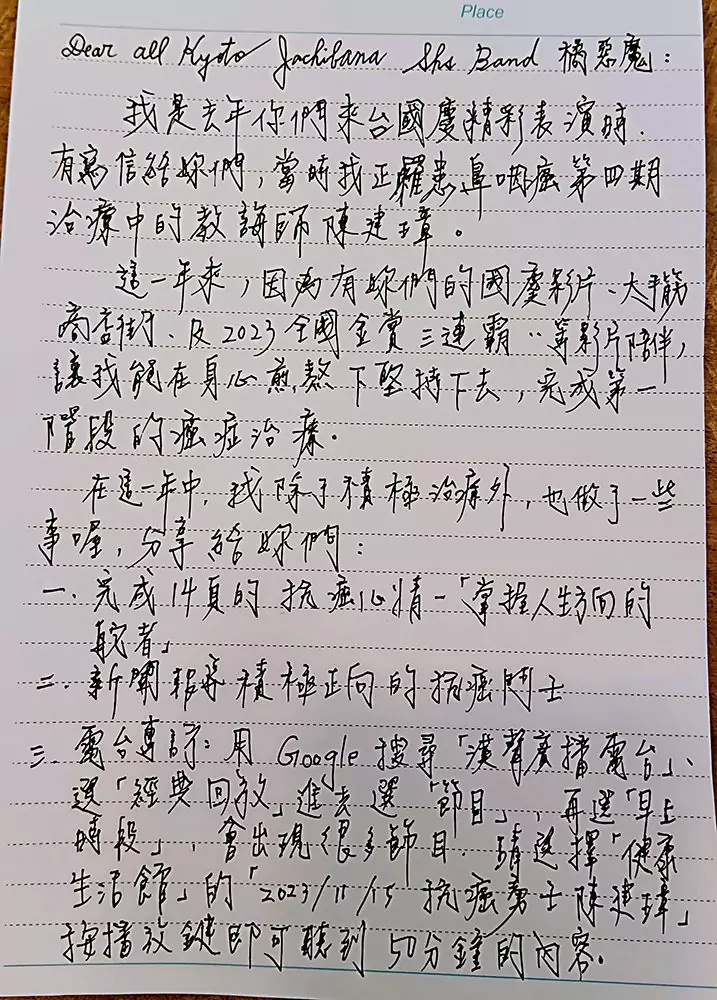 Place
Dear all Kyoto Tachibana Shs Band 橘惡魔：
我是去年你們來台國慶精彩表演時，
有寫信給妳們，當時我正罹患鼻咽癌第四期
治療中的教誨師陳建璋。
這一年來，因為有妳們的國慶影片、大手筋
商店街、及2023全國金賞三連霸‥等影片陪伴，
讓我能在身心煎熬下堅持下去，完成第一
階段的癌症治療。
在這一年中，我除了積極治療外，也做了一些
事喔，分享給妳們：
一、完成14頁的抗癌心情－「掌握人生方向的
舵者」
二、新聞報導積極正向的抗癌鬥士
三、電台專訪：用Google搜尋「漢聲廣播電台」、
選「經典回放」進去選「節目」，再選「早上
時段」，會出現很多節目，請選擇「健康
生活館」的「2023/11/15 抗癌勇士陳建璋」
按播放鍵即可聽到50分鐘的內容。